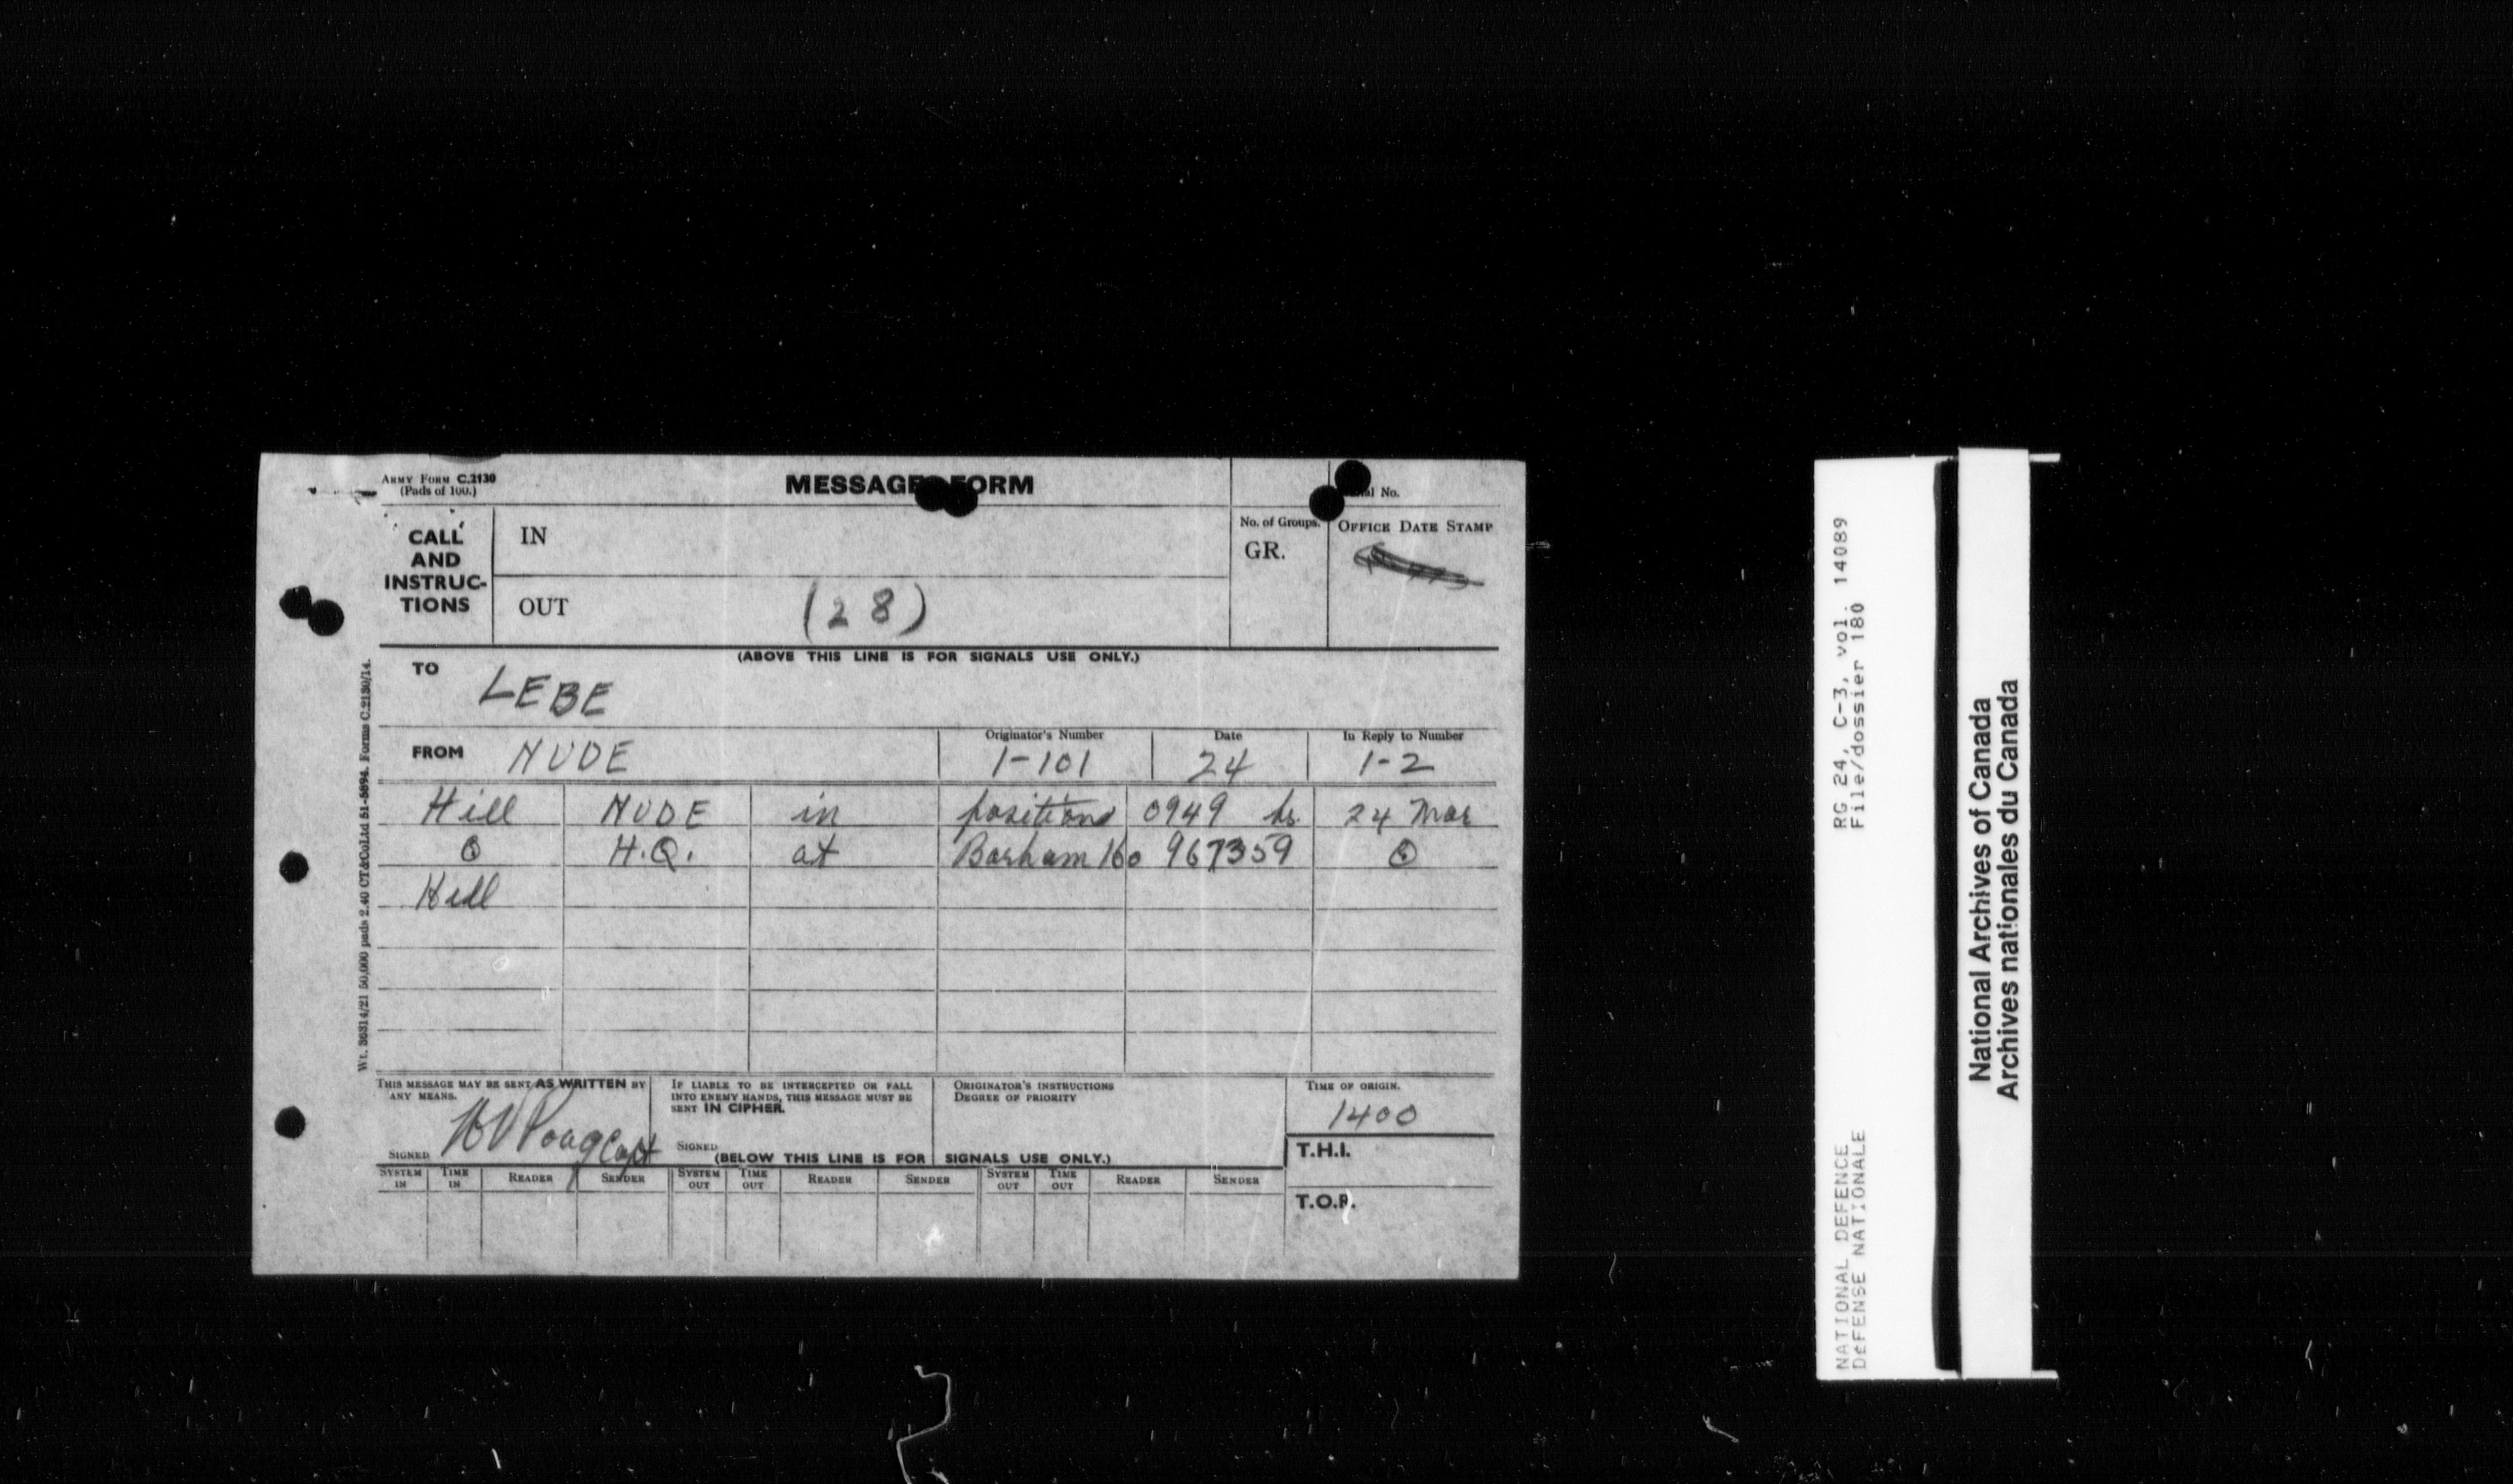 ARMY FORM C.2130
(Pads of 100.)
MESSAGE FORM
No.
CALL AND INSTRUC- TIONS
IN
No. of Groups.
GR.
OFFICE DATE STAMP
OUT
(28)
(ABOVE THIS LINE IS FOR SIGNALS USE ONLY.)
TO LEBE
FROM NUDE
Originator's Number 1-101
Date 24
In Reply to Number 1-2
Hill NUDE in positions 0949 hr 24 Mar
H.Q. at Barham 160 967359
Hill
THIS MESSAGE MAY BE SENT AS WRITTEN BY
ANY MEANS.
SIGNED Capt
IF LIABLE TO BE INTERCEPTED OR FALL
INTO ENEMY HANDS, THIS MESSAGE MUST BE
SENT IN CIPHER.
SIGNED
ORIGINATOR'S INSTRUCTIONS
DEGREE OF PRIORITY
TIME OF ORIGIN.
1400
T.H.I.
(BELOW THIS LINE IS FOR SIGNALS USE ONLY.)
SYSTEM IN TIME IN READER SENDER SYSTEM OUT TIME OUT READER SENDER SYSTEM OUT TIME OUT READER SENDER
T.O.R.
Wt. 36314/21 50,000 pads 2.40 CT&CoLtd 51-5894. Forms C.2130/14.
RG 24, C-3, vol. 14089
File/dossier 180
NATIONAL DEFENCE
DEFENSE NATIONALE
National Archives of Canada
Archives nationales du Canada